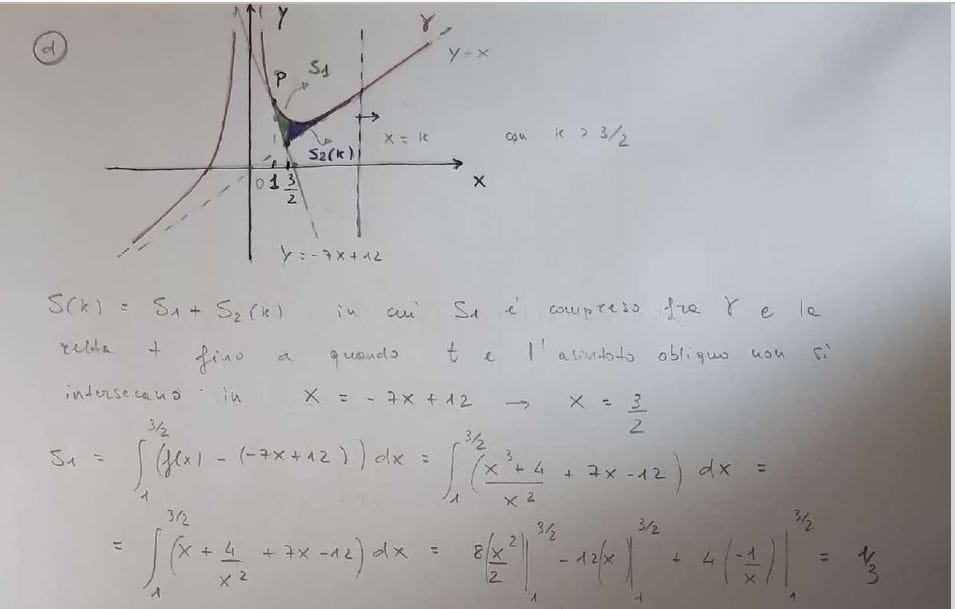 d
y
γ
S1
P
y = x
x = k
con k > 3/2
S2(k)
0 1 3/2
x
y = -7x + 12
S(k) = S1 + S2(k) in cui S1 è compreso fra γ e la
retta t fino a quando t e l'asintoto obliquo non si
intersecano in x = -7x + 12 → x = 3/2
S1 = ∫_1^{3/2} (f(x) - (-7x + 12)) dx = ∫_1^{3/2} ( (x^3 + 4)/x^2 + 7x - 12 ) dx =
= ∫_1^{3/2} (x + 4/x^2 + 7x - 12) dx = 8(x^2/2)|_1^{3/2} - 12(x)|_1^{3/2} + 4(-1/x)|_1^{3/2} = 1/3